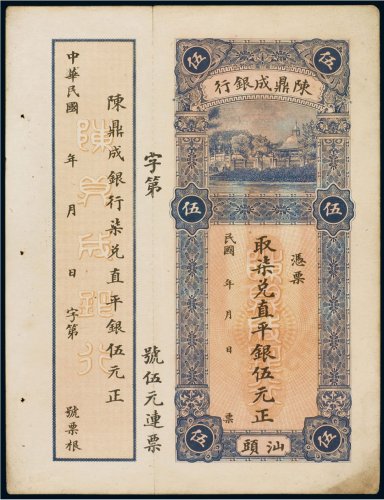 伍 伍
行銀成鼎陳
伍 伍
憑票
取柒兌直平銀伍元正
民國 年 月 日 票
伍 伍
頭汕
字第 號伍元連票
陳鼎成銀行柒兌直平銀伍元正
中華民國 年 月 日 字第 號票根
陳兌成銀行